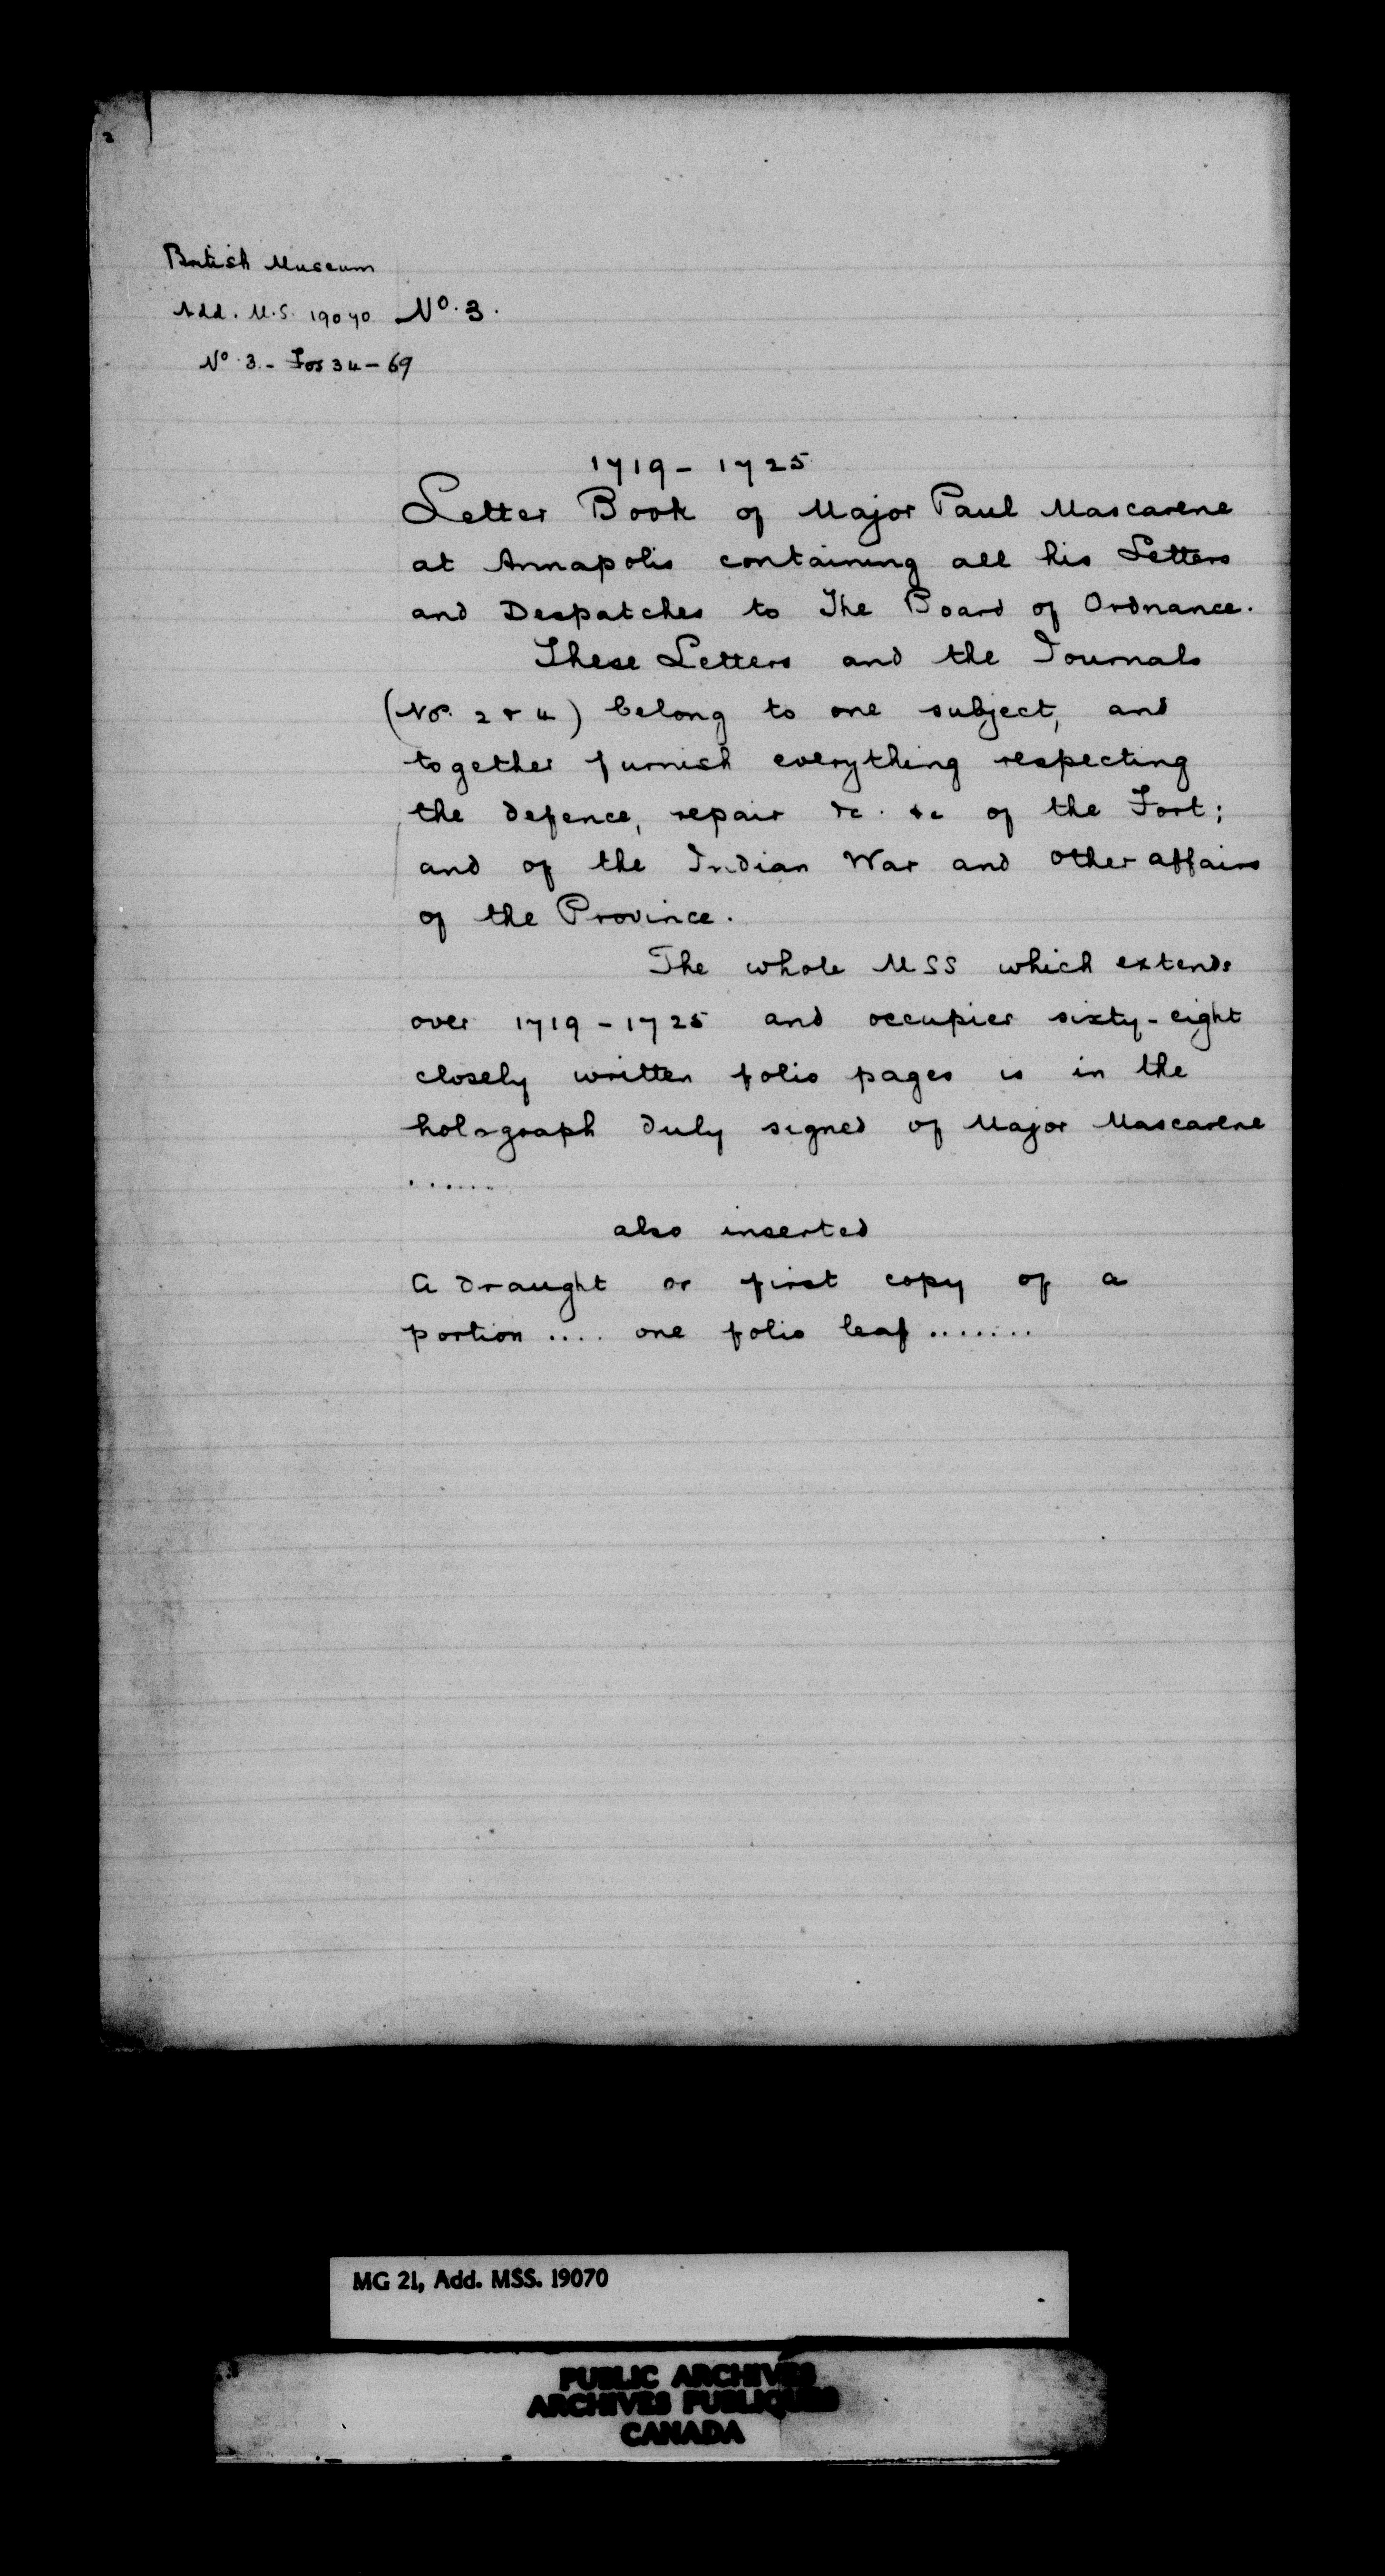 2
British Museum
Add. M.S. 19070 No. 3.
No. 3. - Fos 34 - 69
1719 - 1725
Letter Book of Major Paul Mascarene
at Annapolis containing all his Letters
and Despatches to The Board of Ordnance.
These Letters and the Journals
(Nos. 2 & 4) belong to one subject, and
together furnish everything respecting
the defence, repair &c. &c of the Fort;
and of the Indian War and other affairs
of the Province.
The whole MSS which extends
over 1719 - 1725 and occupies sixty-eight
closely written folio pages is in the
holograph duly signed of Major Mascarene
......
also inserted
A draught or first copy of a
portion .... one folio leaf .......
MG 21, Add. MSS. 19070
PUBLIC ARCHIVES
ARCHIVES PUBLIQUES
CANADA